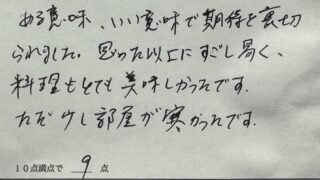 ある意味、いい意味で期待を裏切
られました。思った以上にすごし易く、
料理もとても美味しかったです。
ただ少し部屋が寒かったです。
10点満点で 9 点